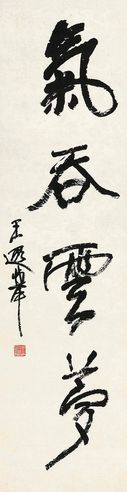 氣吞雲夢
王遐舉